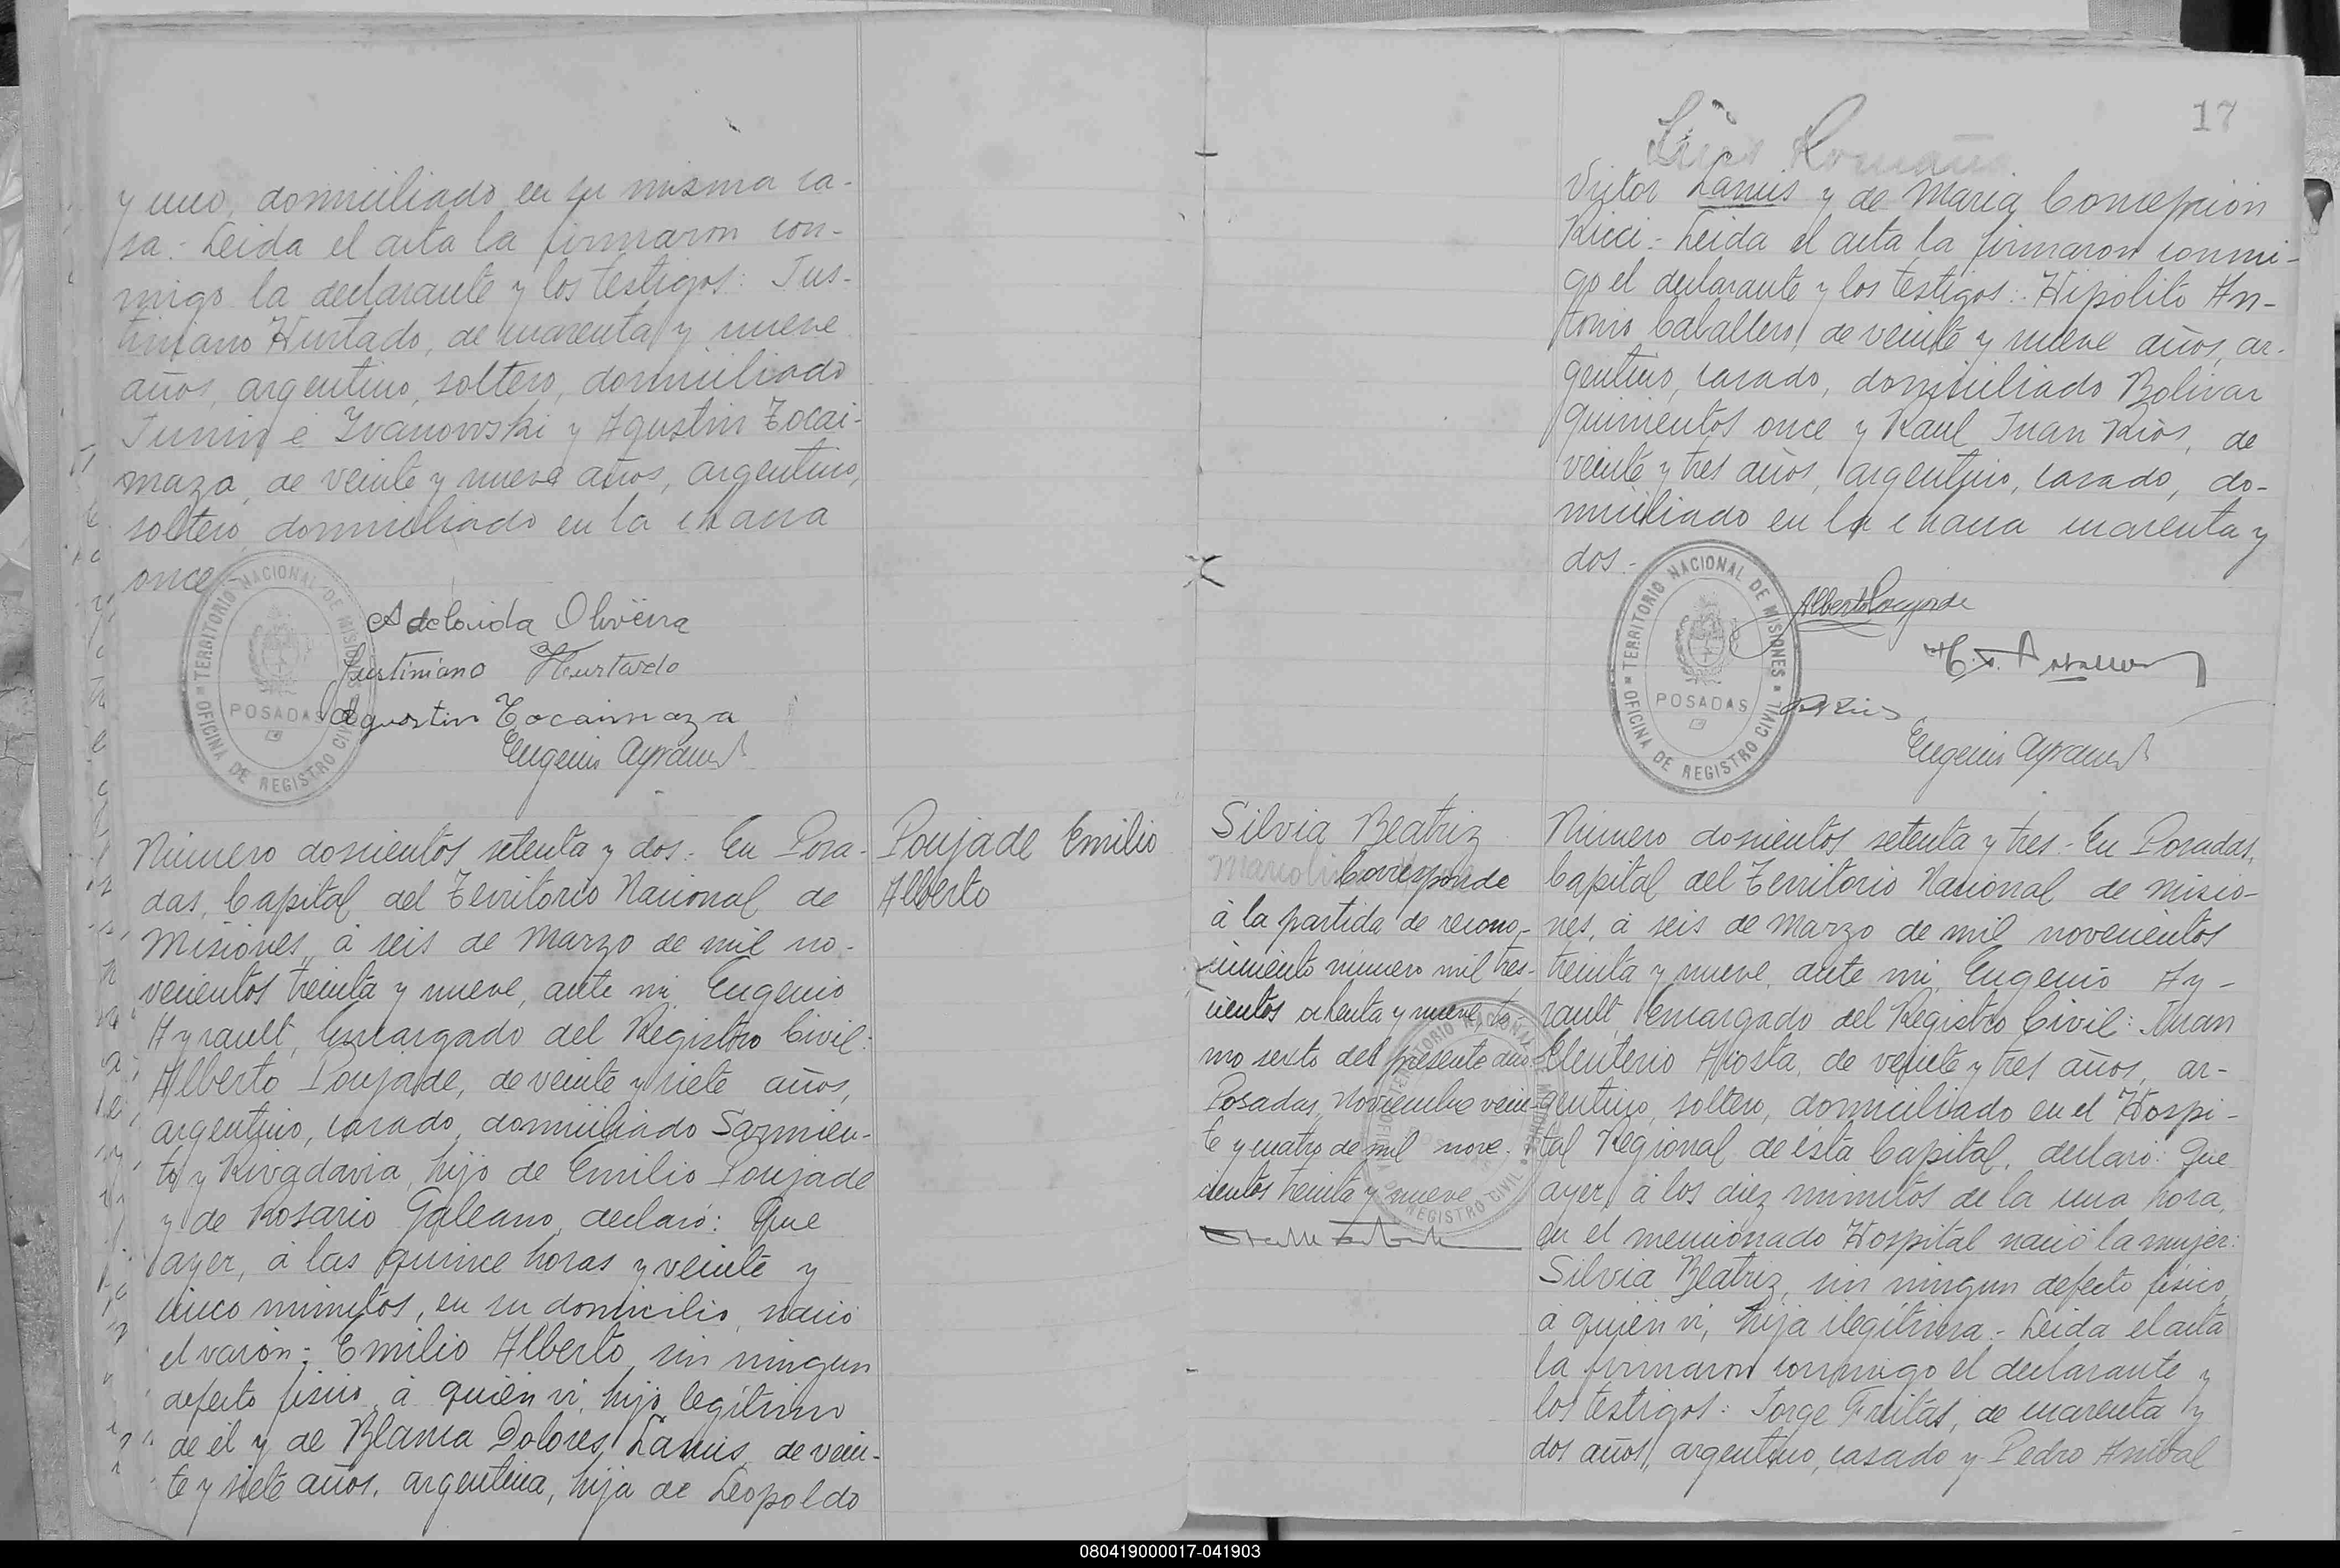 y uno, domiciliado en su misma ca-
sa.- Leida el acta la firmaron con-
migo la declarante y los testigos: Jus-
tiniano Hurtado, de cuarenta y nueve
años, argentino, soltero, domiciliado
Junin é Ivanowski y Agustin Tocai-
maza, de veinte y nueve años, argentino,
soltero, domiciliado en la chacra
once.-
TERRITORIO NACIONAL DE MISIONES
OFICINA DE REGISTRO CIVIL
POSADAS
Adelaida Oliveira
Justiniano Hurtado
Agustin Tocaimaza
Eugenio Ayrault
Número doscientos setenta y dos.- En Posa-
das, Capital del Territorio Nacional de
Misiones, á seis de Marzo de mil no-
vecientos treinta y nueve, ante mi, Eugenio
Ayrault, Encargado del Registro Civil:
Alberto Poujade, de veinte y siete años,
argentino, casado, domiciliado Sarmien-
to y Rivadavia, hijo de Emilio Poujade
y de Rosario Galeano, declaró: Que
ayer, á las quince horas y veinte y
cinco minutos, en su domicilio, nació
el varón: Emilio Alberto, sin ningun
defecto fisico, á quién vi, hijo legítimo
de él y de Blanca Dolores Lanús, de vein-
te y siete años, argentina, hija de Leopoldo
Poujade Emilio
Alberto
17
Victor Lanús y de Maria Concepción
Ricci.- Leida el acta la firmaron conmi-
go el declarante y los testigos: Hipólito An-
tonio Caballero, de veinte y nueve años, ar-
gentino, casado, domiciliado Bolivar
quinientos once y Raul Juan Rios, de
veinte y tres años, argentino, casado, do-
miciliado en la chacra cuarenta y
dos.-
TERRITORIO NACIONAL DE MISIONES
OFICINA DE REGISTRO CIVIL
POSADAS
Alberto Poujade
H. A. Caballero
Rios
Eugenio Ayrault
Silvia Beatriz
Corresponde
á la partida de recono-
cimiento número mil tres-
cientos ochenta y nueve to-
mo sexto del presente año.
Posadas, Noviembre vein-
te y cuatro de mil nove-
cientos treinta y nueve
Número doscientos setenta y tres.- En Posadas,
Capital del Territorio Nacional de Misio-
nes, á seis de Marzo de mil novecientos
treinta y nueve, ante mi, Eugenio Ay-
rault, Encargado del Registro Civil: Juan
Eleuterio Acosta, de veinte y tres años, ar-
gentino, soltero, domiciliado en el Hospi-
tal Regional de ésta Capital, declaró: Que
ayer, á los diez minutos de la una hora,
en el mencionado Hospital nació la mujer:
Silvia Beatriz, sin ningun defecto fisico,
á quién vi, hija ilegítima.- Leida el acta
la firmaron conmigo el declarante y
los testigos: Jorge Freitas, de cuarenta y
dos años, argentino, casado y Pedro Anibal
080419000017-041903